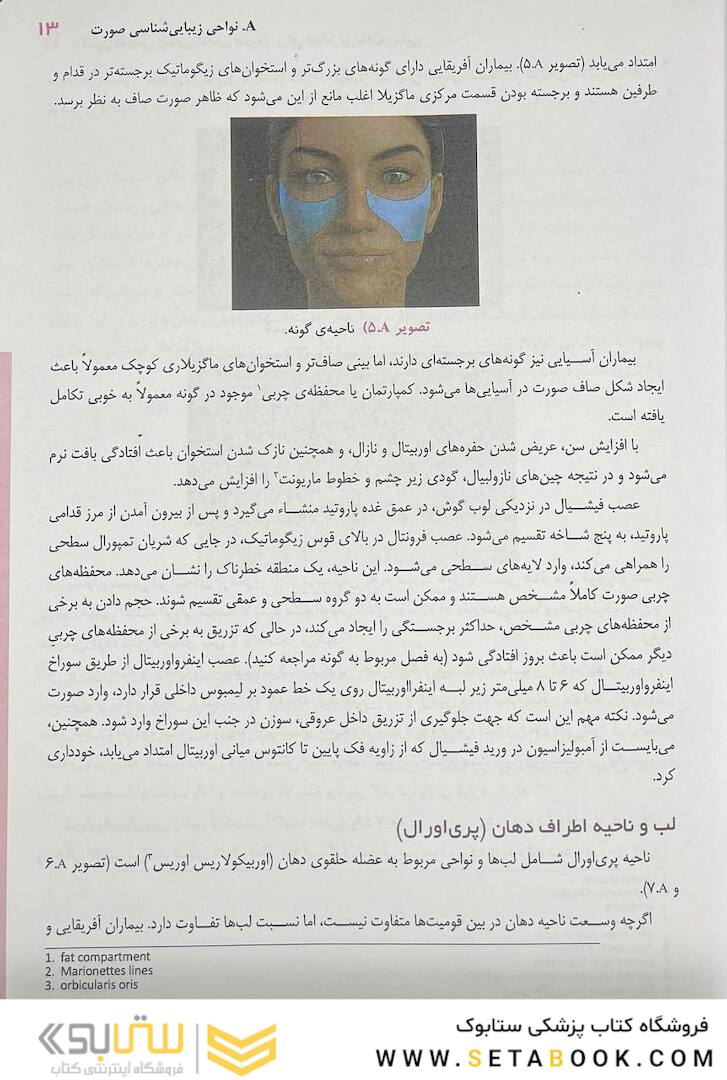 A. نواحی زیبایی‌شناسی صورت ۱۳
امتداد می‌یابد (تصویر ۵.A). بیماران آفریقایی دارای گونه‌های بزرگ‌تر و استخوان‌های زیگوماتیک برجسته‌تر در قدام و
طرفین هستند و برجسته بودن قسمت مرکزی ماگزیلا اغلب مانع از این می‌شود که ظاهر صورت صاف به نظر برسد.
تصویر ۵.A) ناحیه‌ی گونه.
بیماران آسیایی نیز گونه‌های برجسته‌ای دارند، اما بینی صاف‌تر و استخوان‌های ماگزیلاری کوچک معمولاً باعث
ایجاد شکل صاف صورت در آسیایی‌ها می‌شود. کمپارتمان یا محفظه‌ی چربی۱ موجود در گونه معمولاً به خوبی تکامل
یافته است.
با افزایش سن، عریض شدن حفره‌های اوربیتال و نازال، و همچنین نازک شدن استخوان باعث افتادگی بافت نرم
می‌شود و در نتیجه چین‌های نازولبیال، گودی زیر چشم و خطوط ماریونت۲ را افزایش می‌دهد.
عصب فیشیال در نزدیکی لوب گوش، در عمق غده پاروتید منشاء می‌گیرد و پس از بیرون آمدن از مرز قدامی
پاروتید، به پنج شاخه تقسیم می‌شود. عصب فرونتال در بالای قوس زیگوماتیک، در جایی که شریان تمپورال سطحی
را همراهی می‌کند، وارد لایه‌های سطحی می‌شود. این ناحیه، یک منطقه خطرناک را نشان می‌دهد. محفظه‌های
چربی صورت کاملاً مشخص هستند و ممکن است به دو گروه سطحی و عمقی تقسیم شوند. حجم دادن به برخی
از محفظه‌های چربی مشخص، حداکثر برجستگی را ایجاد می‌کند، در حالی که تزریق به برخی از محفظه‌های چربی
دیگر ممکن است باعث بروز افتادگی شود (به فصل مربوط به گونه مراجعه کنید). عصب اینفرواوربیتال از طریق سوراخ
اینفرواوربیتال که ۶ تا ۸ میلی‌متر زیر لبه اینفرااوربیتال روی یک خط عمود بر لیمبوس داخلی قرار دارد، وارد صورت
می‌شود. نکته مهم این است که جهت جلوگیری از تزریق داخل عروقی، سوزن در جنب این سوراخ وارد شود. همچنین،
می‌بایست از آمبولیزاسیون در ورید فیشیال که از زاویه فک پایین تا کانتوس میانی اوربیتال امتداد می‌یابد، خودداری
کرد.
لب و ناحیه اطراف دهان (پری‌اورال)
ناحیه پری‌اورال شامل لب‌ها و نواحی مربوط به عضله حلقوی دهان (اوربیکولاریس اوریس۳) است (تصویر ۶.A
و ۷.A).
اگرچه وسعت ناحیه دهان در بین قومیت‌ها متفاوت نیست، اما نسبت لب‌ها تفاوت دارد. بیماران آفریقایی و
1. fat compartment
2. Marionettes lines
3. orbicularis oris
فروشگاه کتاب پزشکی ستابوک
WWW.SETABOOK.COM
ستابوک
فروشگاه اینترنتی کتاب